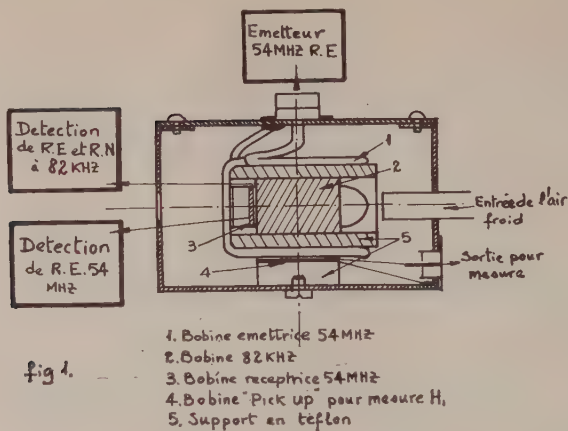 Emetteur
54MHZ R.E
Detection
de R.E et R.N
à 82 KHZ
Detection
de R.E. 54
MHZ
1
2
3
4
5
Entrée de l'air
froid
Sortie pour
mesure
fig 1.
1. Bobine emettrice 54MHZ
2. Bobine 82KHZ
3. Bobine receptrice 54MHZ
4. Bobine "Pick up" pour mesure H₁
5. Support en téflon